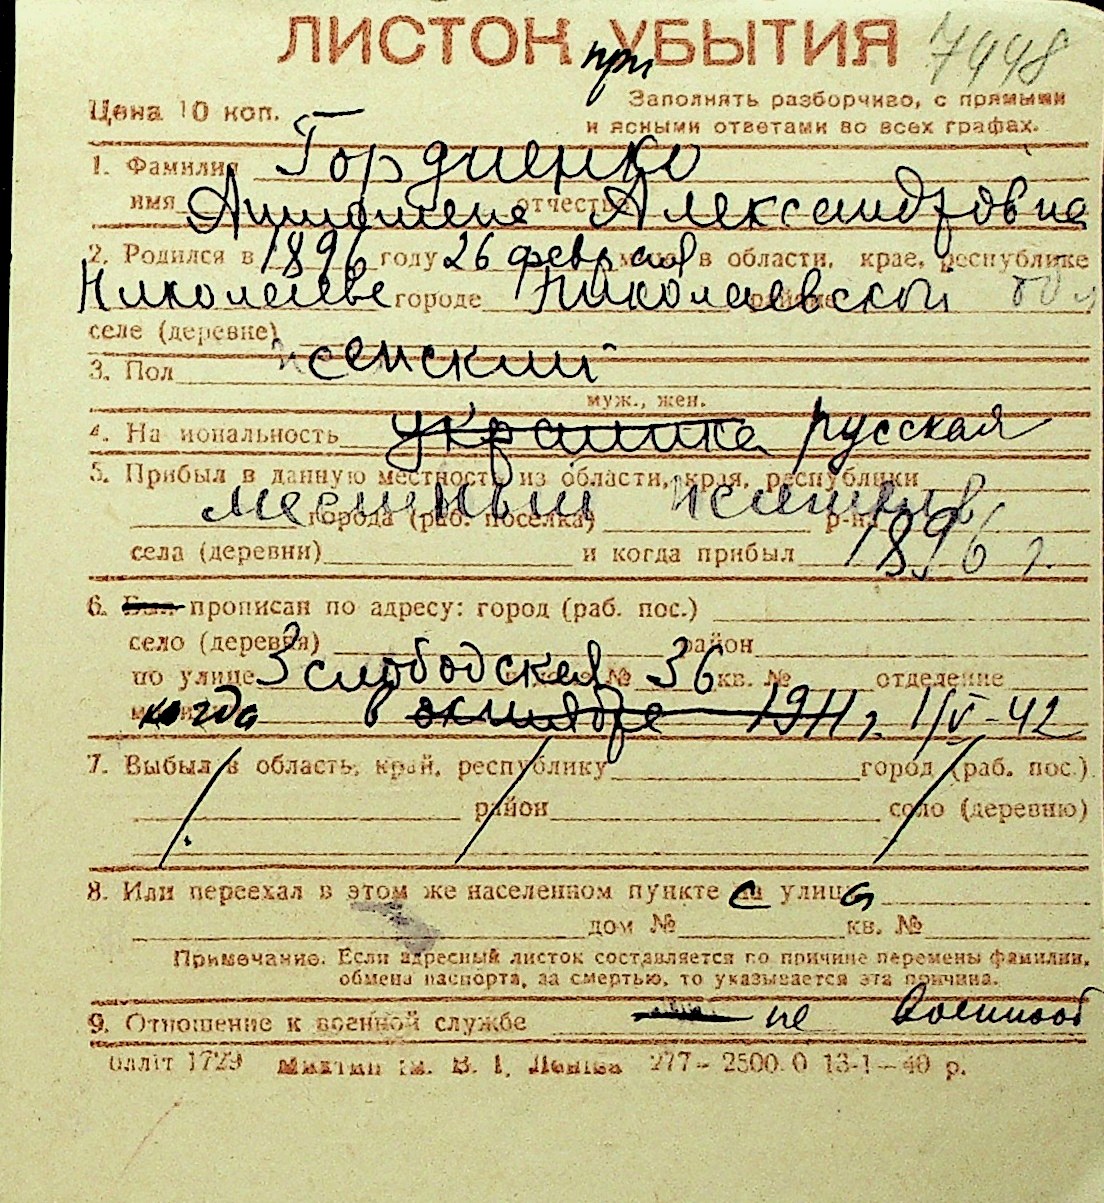 ЛИСТОК при УБЫТИЯ 7448
Цена 10 коп.
Заполнять разборчиво, с прямыми
и ясными ответами во всех графах.
1. Фамилия Гордиенко
имя отчество Александровна
2. Родился в 1896 году 26 февраля в области, крае, республике
Николаеве городе Николаевской обл
селе (деревне)
3. Пол женский
муж., жен.
4. На иональность украинка русская
5. Прибыл в данную местность из области, края, республики
местный житель
города (раб. поселка) р-на
села (деревни) и когда прибыл 1896 г.
6. Был прописан по адресу: город (раб. пос.)
село (деревня) район
по улице 3 слободская № 36 кв. № отделение
когда в октябре 1941 г. 1/V-42
7. Выбыл в область, край, республику город (раб. пос.)
район село (деревню)
8. Или переехал в этом же населенном пункте с улиц
дом № кв. №
Примечание. Если адресный листок составляется по причине перемены фамилии,
обмена паспорта, за смертью, то указывается эта причина.
9. Отношение к военной службе не военнооб
блліт 1729 ім. В. І. Леніна 277 – 2500.0 13-1 – 40 р.